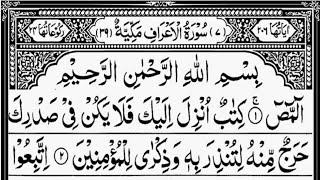 اٰيَاتُهَا ٢٠٦ (٧) سُوْرَةُ الْاَعْرَافِ مَكِّيَّةٌ (٣٩) رُكُوْعَاتُهَا ٢٤
بِسْمِ اللّٰهِ الرَّحْمٰنِ الرَّحِيْمِ
الٓمّٓصٓ ۚ ١ كِتٰبٌ اُنْزِلَ اِلَيْكَ فَلَا يَكُنْ فِيْ صَدْرِكَ
حَرَجٌ مِّنْهُ لِتُنْذِرَ بِهٖ وَذِكْرٰى لِلْمُؤْمِنِيْنَ ٢ اِتَّبِعُوْا